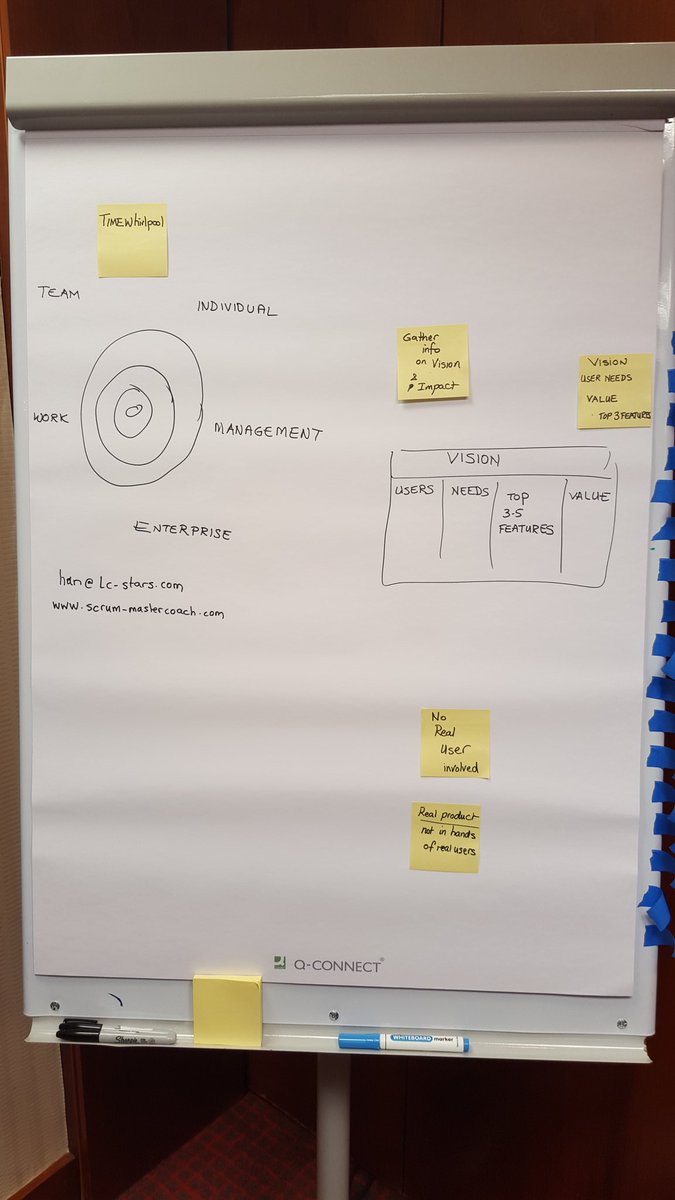 TIMEWhirlpool
TEAM
INDIVIDUAL
WORK
MANAGEMENT
ENTERPRISE
han@Lc-stars.com
www.scrum-mastercoach.com
Gather
info
on Vision
&
Impact
VISION
USER NEEDS
VALUE
TOP 3 FEATURES
VISION
USERS
NEEDS
TOP
3-5
FEATURES
VALUE
No
Real
User
involved
Real product
not in hands
of real users
Q-CONNECT®
Sharpie
WHITEBOARD marker